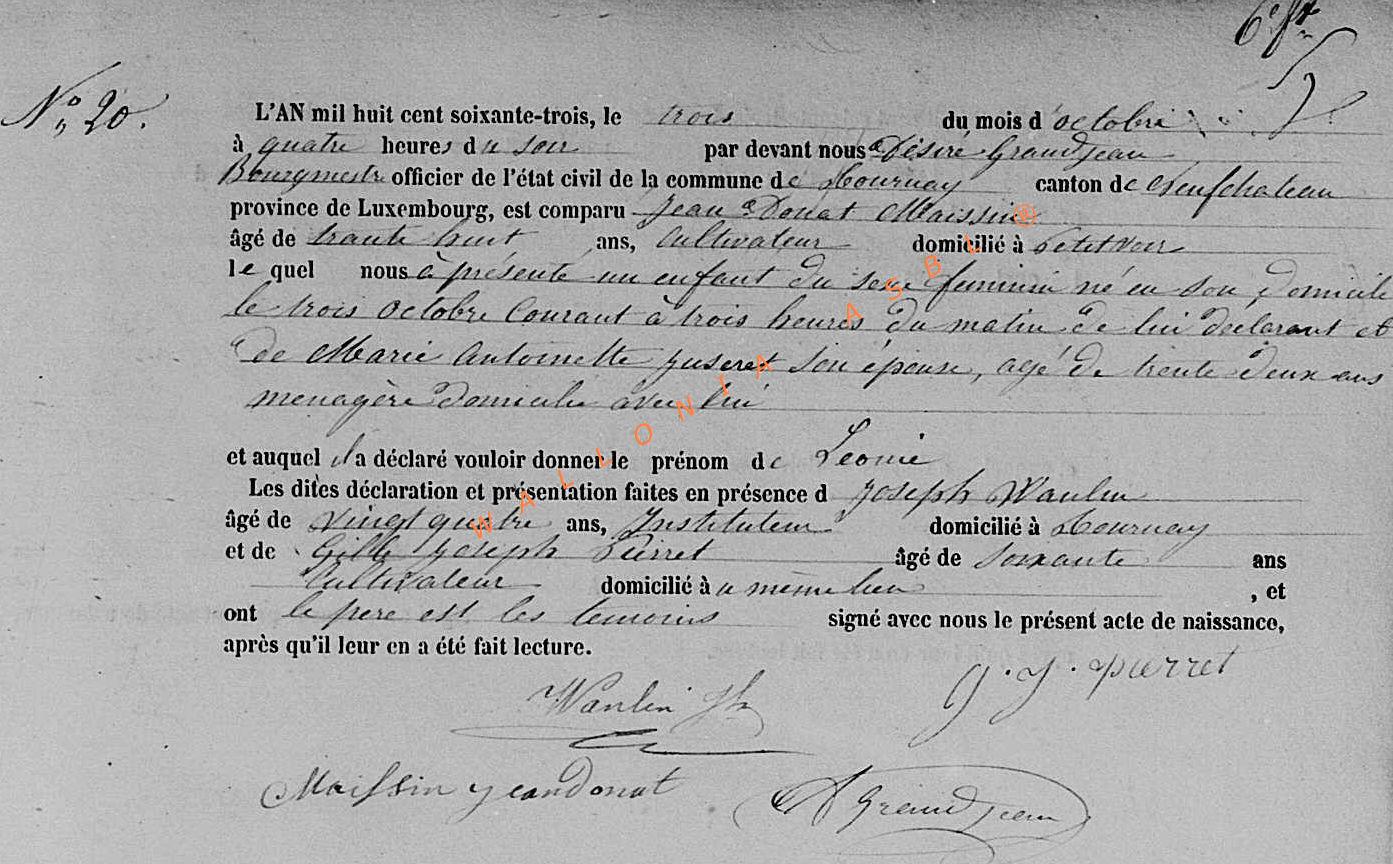 6e f.t
No 20.
L'AN mil huit cent soixante-trois, le trois du mois d'octobre
à quatre heures du soir par devant nous Désiré Grandjean
Bourgmestre officier de l'état civil de la commune de Tournay canton de Neufchateau
province de Luxembourg, est comparu Jean Donat Maissin
âgé de trante huit ans, Cultivateur domicilié à Petitvoir
lequel nous à présenté un enfant du sexe feminin né en son domicile
le trois Octobre Courant à trois heures du matin de lui déclarant et
de Marie Antoinette Juseret son épouse, agé de trente deux ans
menagère domicilié avec lui
et auquel il a déclaré vouloir donner le prénom de Leonie
Les dites déclaration et présentation faites en présence d Joseph Wanlin
âgé de vingt quatre ans, Instituteur domicilié à Tournay
et de Gille Joseph Pierret âgé de soixante ans
Cultivateur domicilié à u même lieu , et
ont le pere est les temoins signé avec nous le présent acte de naissance,
après qu'il leur en a été fait lecture.
Wanlin Jh
J. J. pierret
Maissin jean Donat
D Grandjean
WALLONIA ASBL